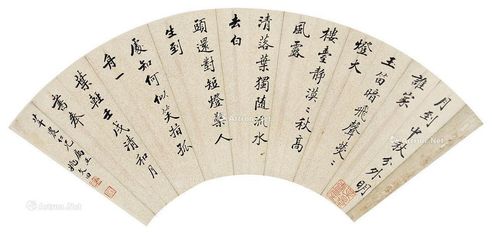 月到中秋分外明
誰家
玉笛暗飛聲
燈火
樓臺靜漠々秋高
風露
清落葉獨隨流水
去白
頭還對短燈檠人
生到
處知何似笑指孤
舟一
葉輕壬戌清和月
仁兄
Artron.Net